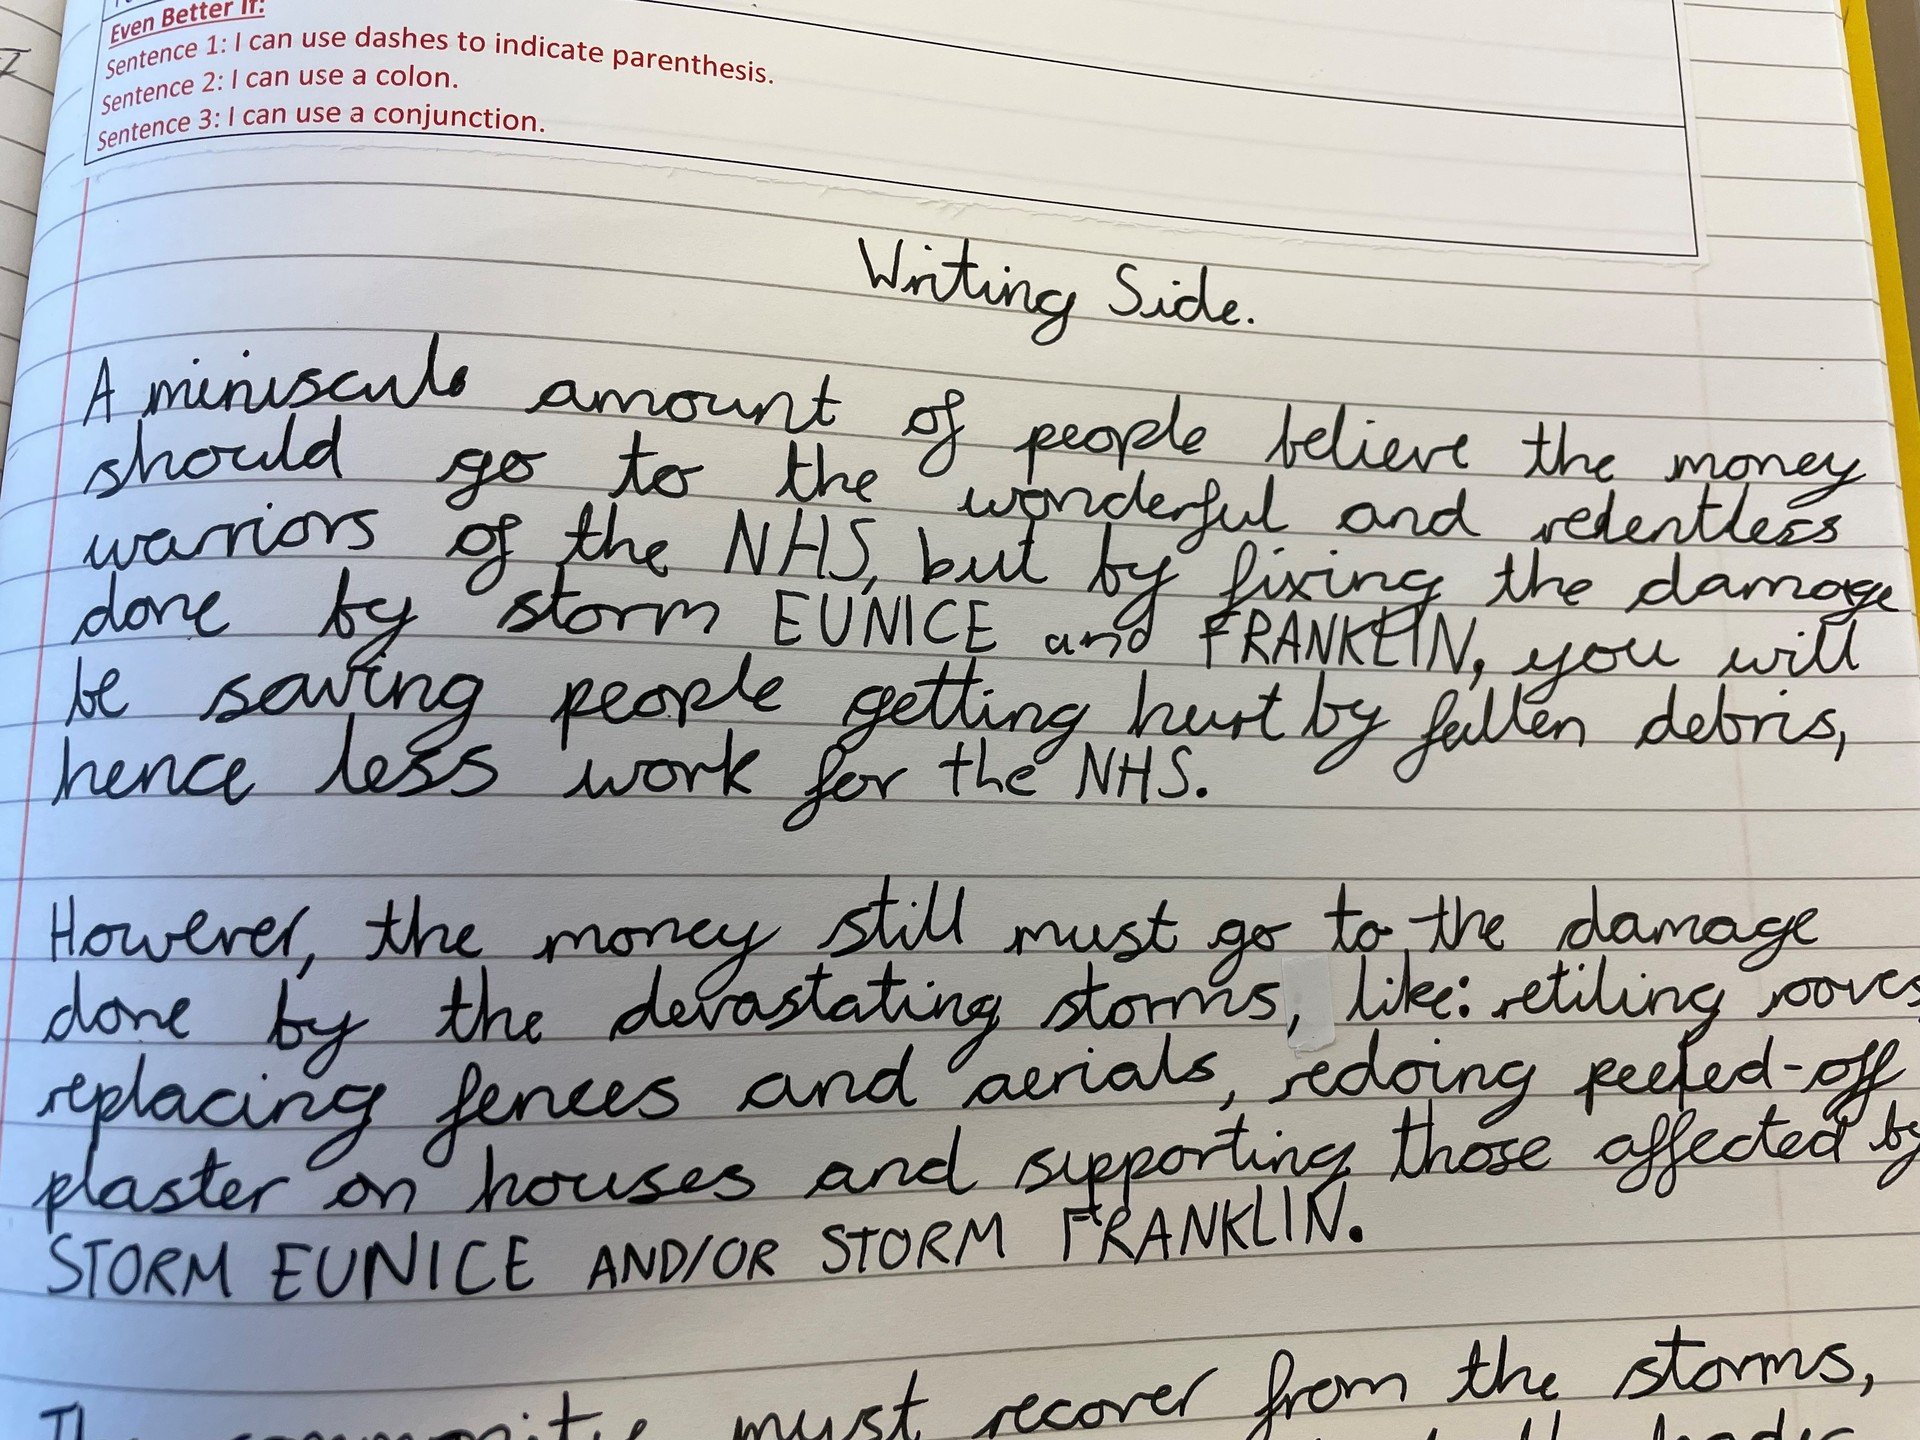 Even Better If:
Sentence 1: I can use dashes to indicate parenthesis.
Sentence 2: I can use a colon.
Sentence 3: I can use a conjunction.
Writing Side.
A miniscule amount of people believe the money
should go to the wonderful and relentless
warriors of the NHS, but by fixing the damage
done by storm EUNICE and FRANKLIN, you will
be saving people getting hurt by fallen debris,
hence less work for the NHS.
However, the money still must go to the damage
done by the devastating storms, like: retiling rooves
replacing fences and aerials, redoing peeled-off
plaster on houses and supporting those affected by
STORM EUNICE AND/OR STORM FRANKLIN.
must recover from the storms,